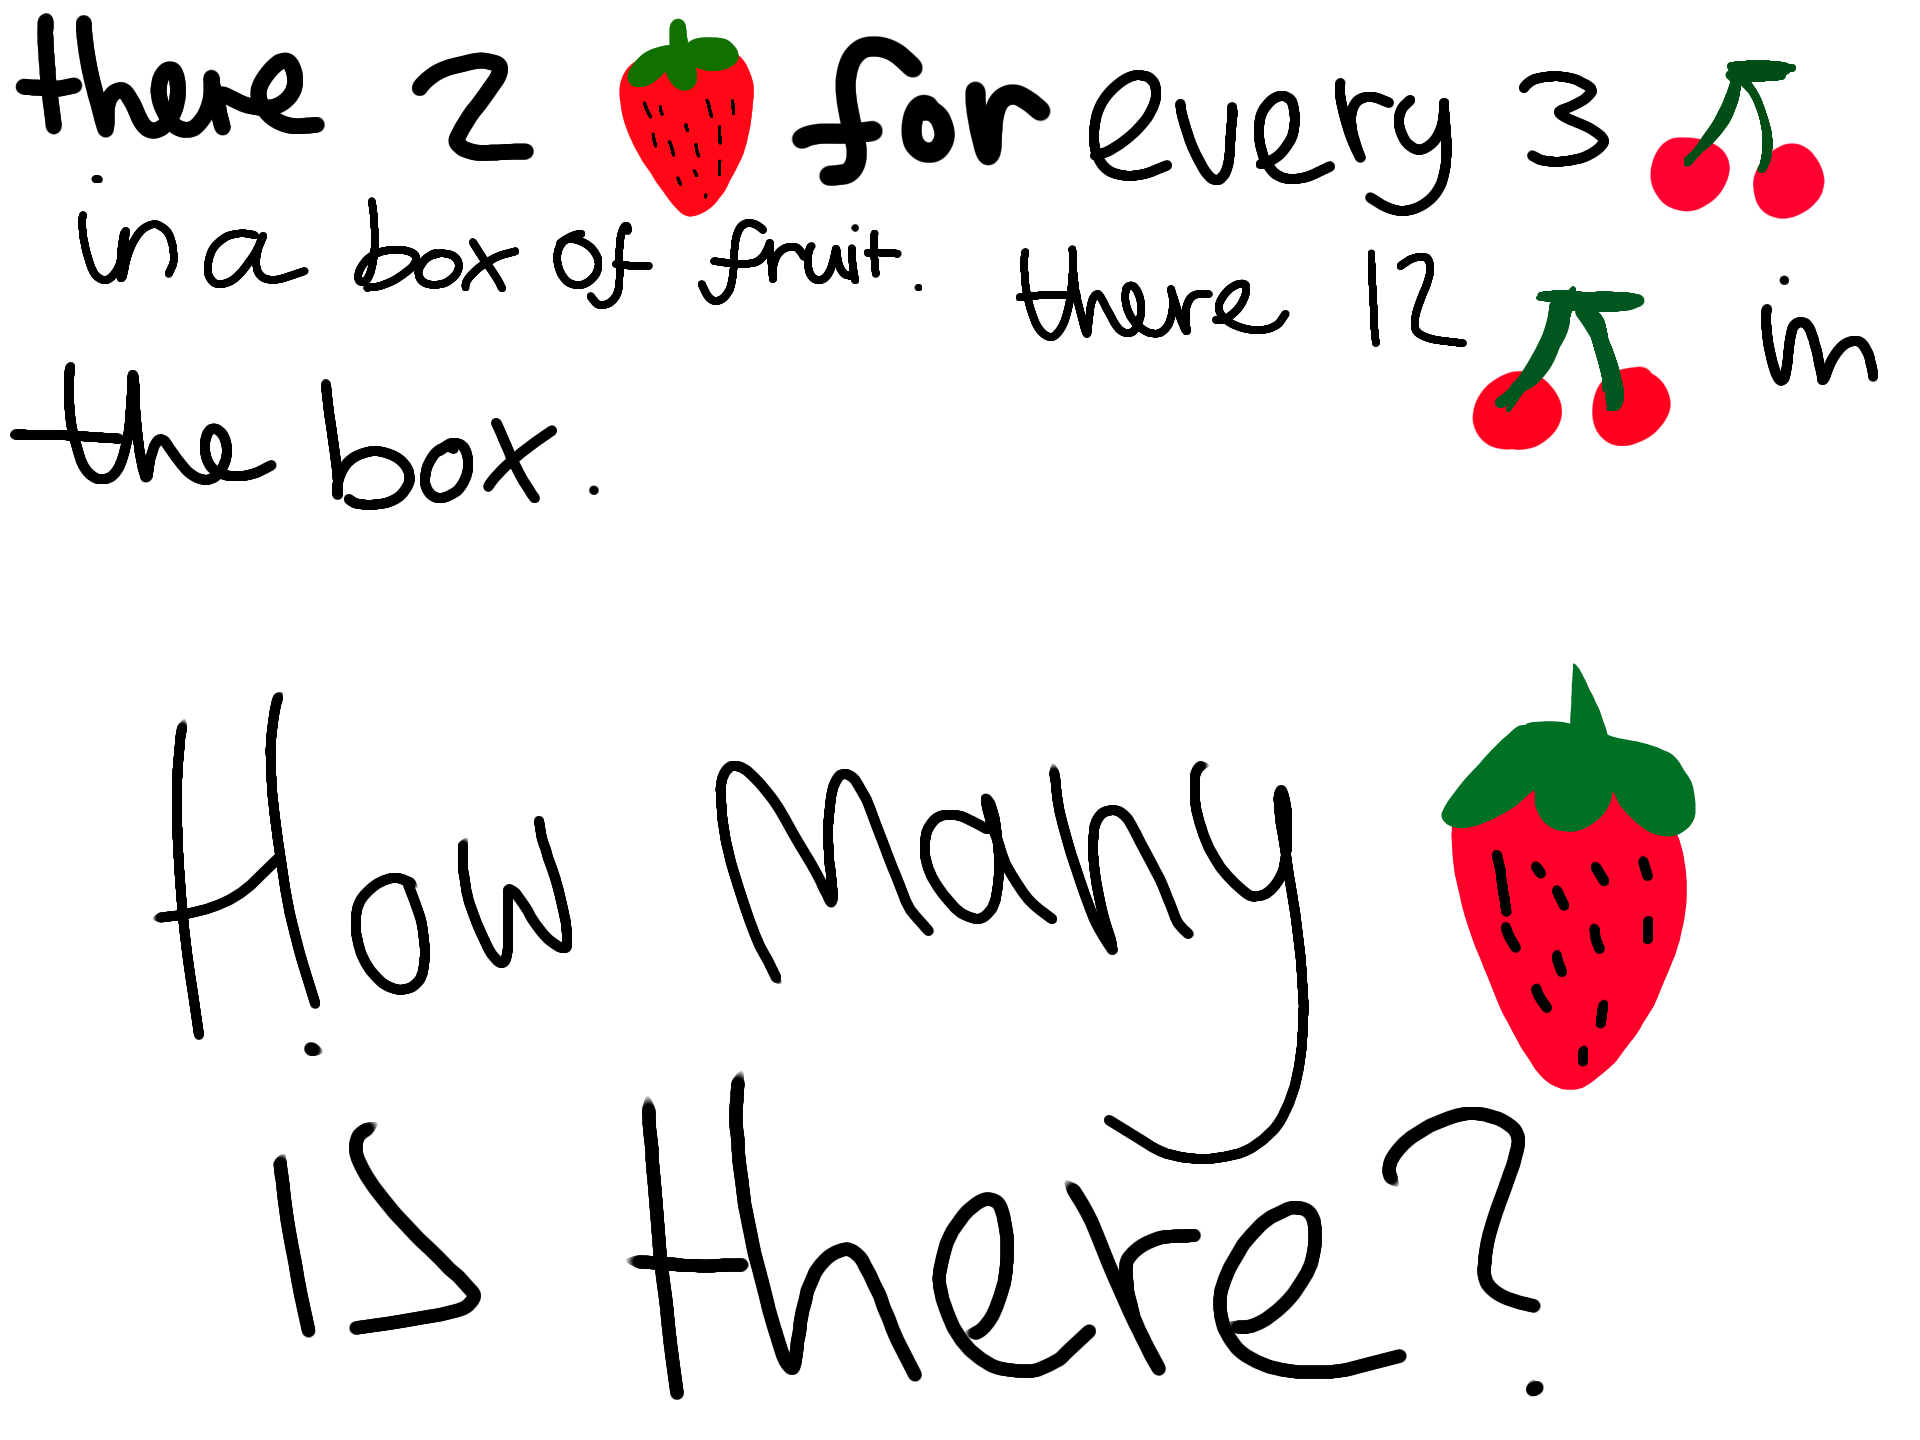 there 2 for every 3
in a box of fruit. there 12 in
the box.
How many
is there?